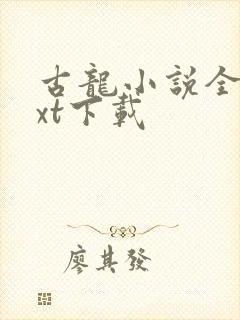 古龍小說全
xt下載
廖其發